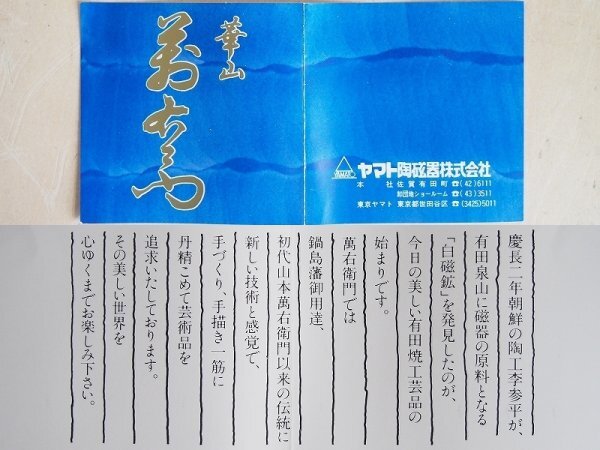 華山
萬右ヱ門
ヤマト陶磁器株式会社
本社 佐賀有田町 ☎(42)6111
卸団地ショールーム ☎(43)3511
東京ヤマト 東京都世田谷区 ☎(3425)5011
慶長二年朝鮮の陶工李参平が、
有田泉山に磁器の原料となる
「白磁鉱」を発見したのが、
今日の美しい有田焼工芸品の
始まりです。
萬右衛門では
鍋島藩御用達、
初代山本萬右衛門以来の伝統に
新しい技術と感覚で、
手づくり、手描き一筋に
丹精こめて芸術品を
追求いたしております。
その美しい世界を
心ゆくまでお楽しみ下さい。